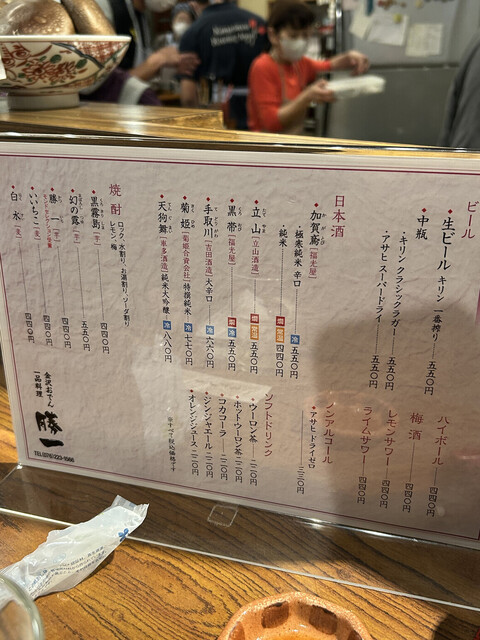 ビール
・生ビール キリン 一番搾り 五五〇円
・中瓶
・キリン クラシックラガー 五五〇円
・アサヒ スーパードライ 五五〇円
日本酒
・加賀鳶 [福光屋]
・極寒純米 辛口 冷 五五〇円
・純米 燗 常温 四四〇円
・立山 [立山酒造] 燗 常温 五五〇円
・黒帯 [福光屋] 燗 冷 五五〇円
・手取川 [吉田酒造] 大辛口 冷 六六〇円
・菊姫 [菊姫合資会社] 特撰純米 冷 七七〇円
・天狗舞 [車多酒造] 純米大吟醸 冷 八八〇円
焼酎 ロック、水割り、お湯割り、ソーダ割り
レモン、梅
・黒霧島 [芋] 四四〇円
・幻の露 [芋] 五五〇円
・勝一 [芋] 四四〇円
・いいちこ [麦] 四四〇円
・白水 [麦] 四四〇円
ハイボール 四四〇円
梅酒 四四〇円
レモンサワー 四四〇円
ライムサワー 四四〇円
ノンアルコール
・アサヒ ドライゼロ 三三〇円
ソフトドリンク
・ウーロン茶 二二〇円
・ホットウーロン茶 二二〇円
・コカコーラ 二二〇円
・ジンジャエール 二二〇円
・オレンジジュース 二二〇円
※すべて税込価格です
金沢おでん
一品料理
勝一